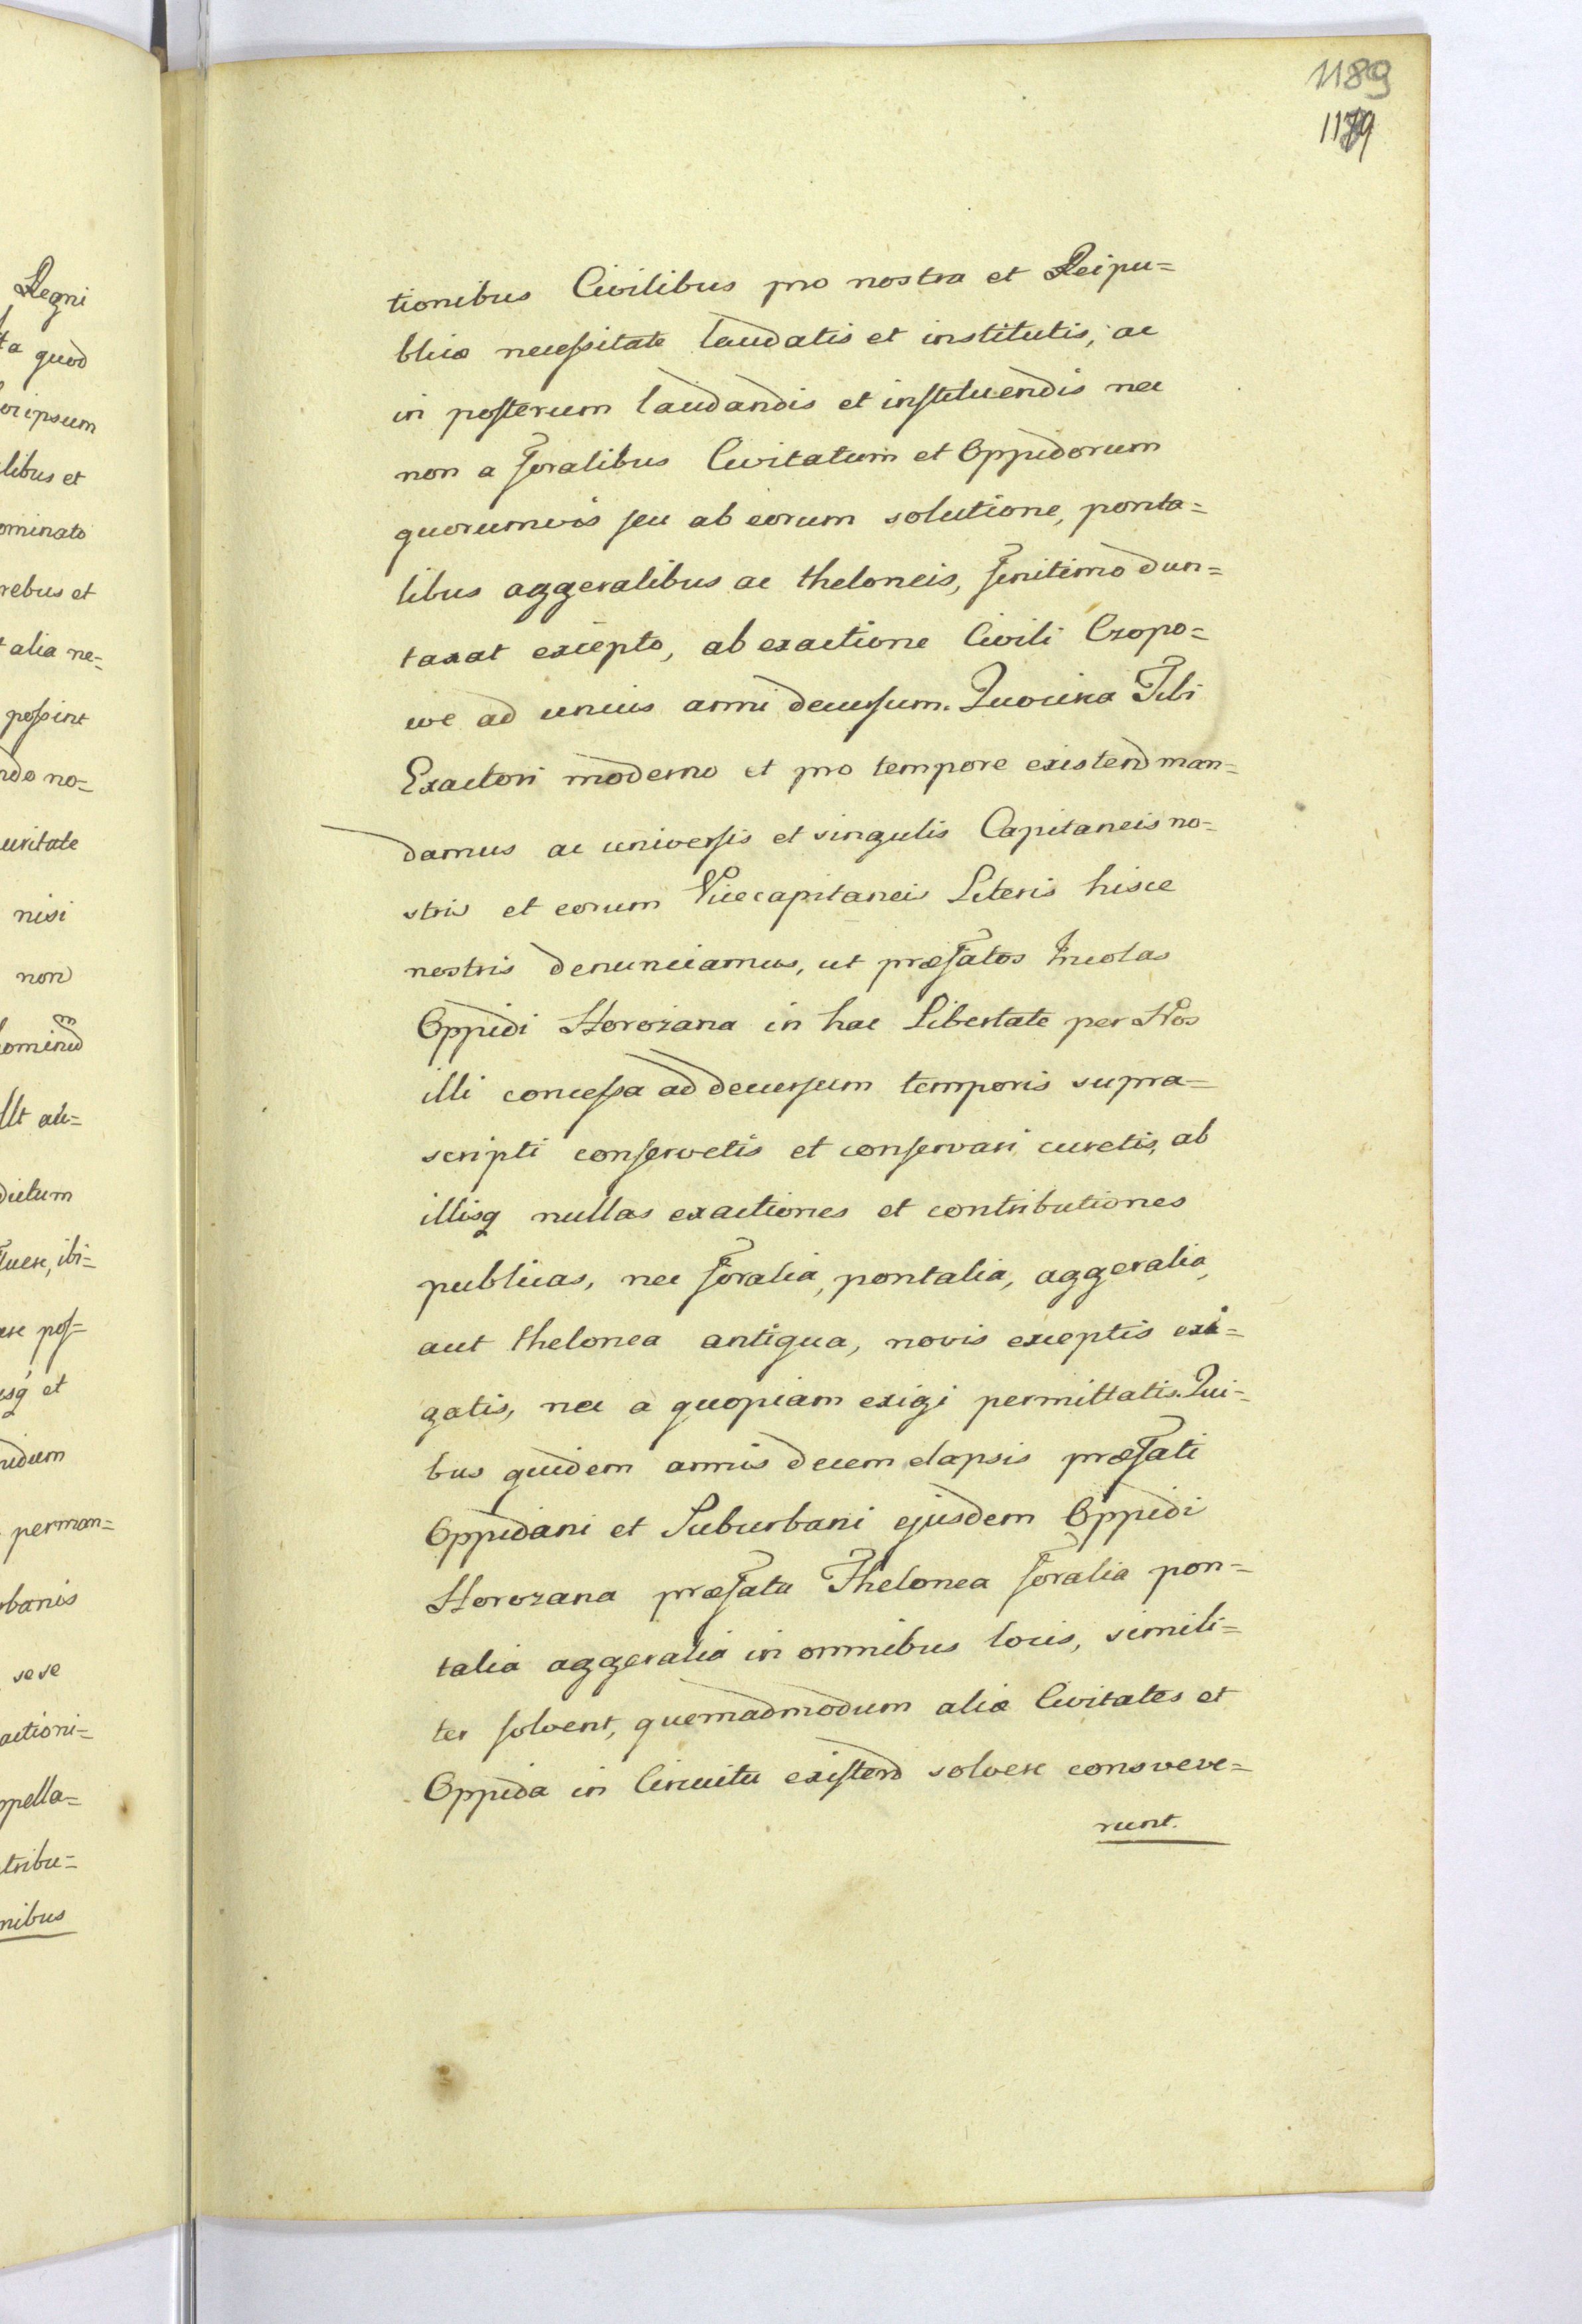 1189
1179
tionibus Civilibus pro nostra et Reipu=
blicæ necessitate laudatis et institutis, ac
in posterum laudandis et instituendis nec
non a foralibus Civitatum et Oppidorum
quorumvis seu ab eorum solutione, ponta=
libus aggeralibus ac theloneis, finitimo dun=
taxat excepto, ab exactione Civili Czopo=
we ad unius anni decursum. Quocirca Tibi
Exactori moderno et pro tempore existend man=
damus ac universis et singulis Capitaneis no=
stris et eorum Vicecapitaneis Literis hisce
nostris denunciamus, ut præfatos Incolas
Oppidi Horozana in hac Libertate per Nos
illi concessa ad decursum temporis supra=
scripti conservetis et conservari curetis, ab
illisq nullas exactiones et contributiones
publicas, nec foralia, pontalia, aggeralia,
aut thelonea antiqua, novis exceptis exi=
gatis, nec a quopiam exigi permittatis. Qui=
bus quidem annis decem elapsis præfati
Oppidani et Suburbani ejusdem Oppidi
Horozana præfata Thelonea foralia pon=
talia aggeralia in omnibus locis, simili=
ter solvent, quemadmodum aliæ Civitates et
Oppida in Circuitu existend solvere consveve=
runt.
Regni
ta quod
ipsum
libus et
ominato
rebus et
alia ne=
possint
ndo no=
uritate
nisi
non
ominu
dictum
uere, ibi=
et
perman=
rbanis
sese
actioni=
ppella=
tribu=
nibus